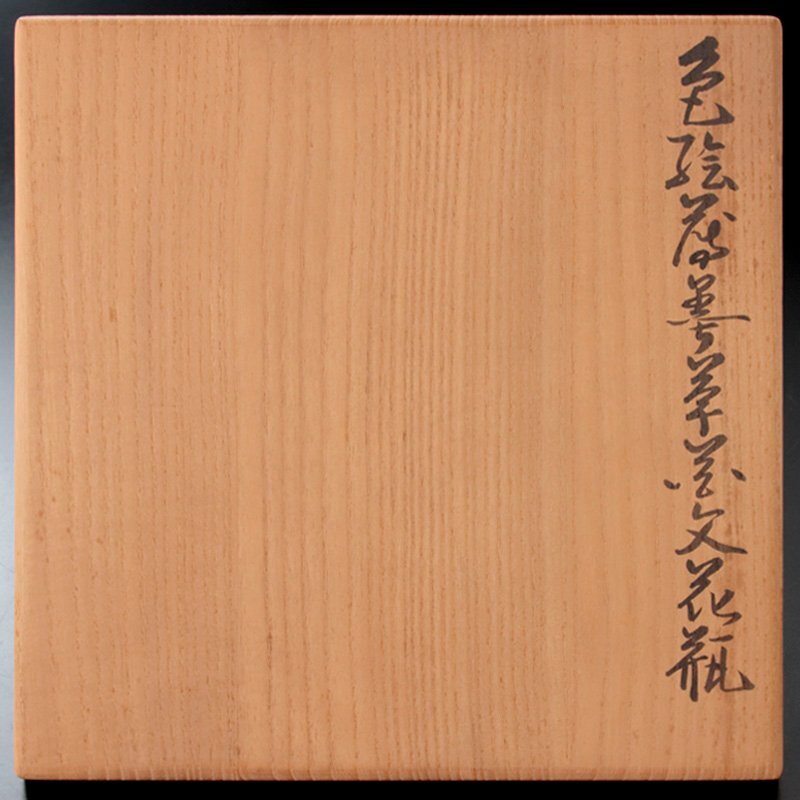 色絵薄墨草花文花瓶